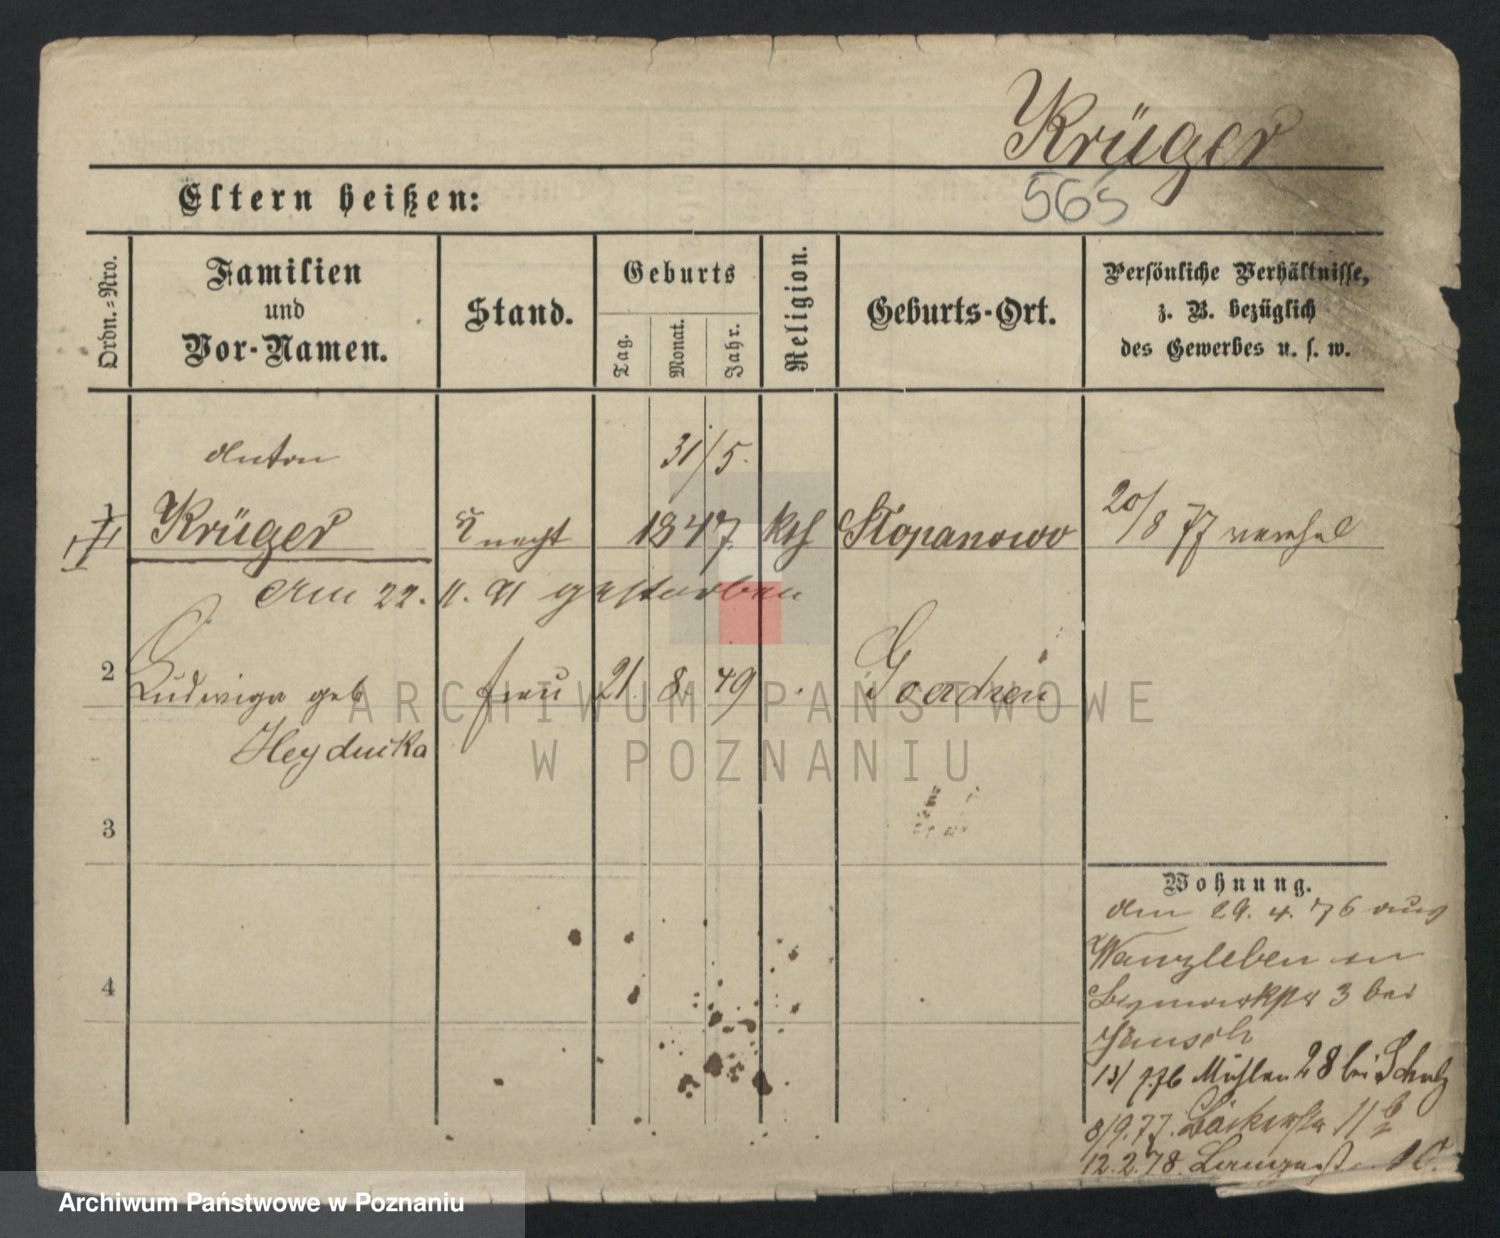 Krüger
Eltern heißen:
565
Ordn.-Nro.
Familien
und
Vor-Namen.
Stand.
Geburts
Tag.
Monat.
Jahr.
Religion.
Geburts-Ort.
Persönliche Verhältnisse,
z. B. bezüglich
des Gewerbes u. s. w.
Anton
31/5.
1 Krüger Knecht 1847. kth Stopanowo 20/8 77 verehel
Am 22. 11. 91 gestorben
2 Ludwiga geb Frau 21. 8. 49
Heyducka
3
4
Wohnung.
den 29. 4. 76 aus
Wanzleben in
Bismarkstr 3 bei
Hänsch
13/7.76 Mühlen 28 bei Schulz
8/9.77. Bäckerstr 11
12.2.78. Langestr 10.
ARCHIWUM PAŃSTWOWE
W POZNANIU
Archiwum Państwowe w Poznaniu